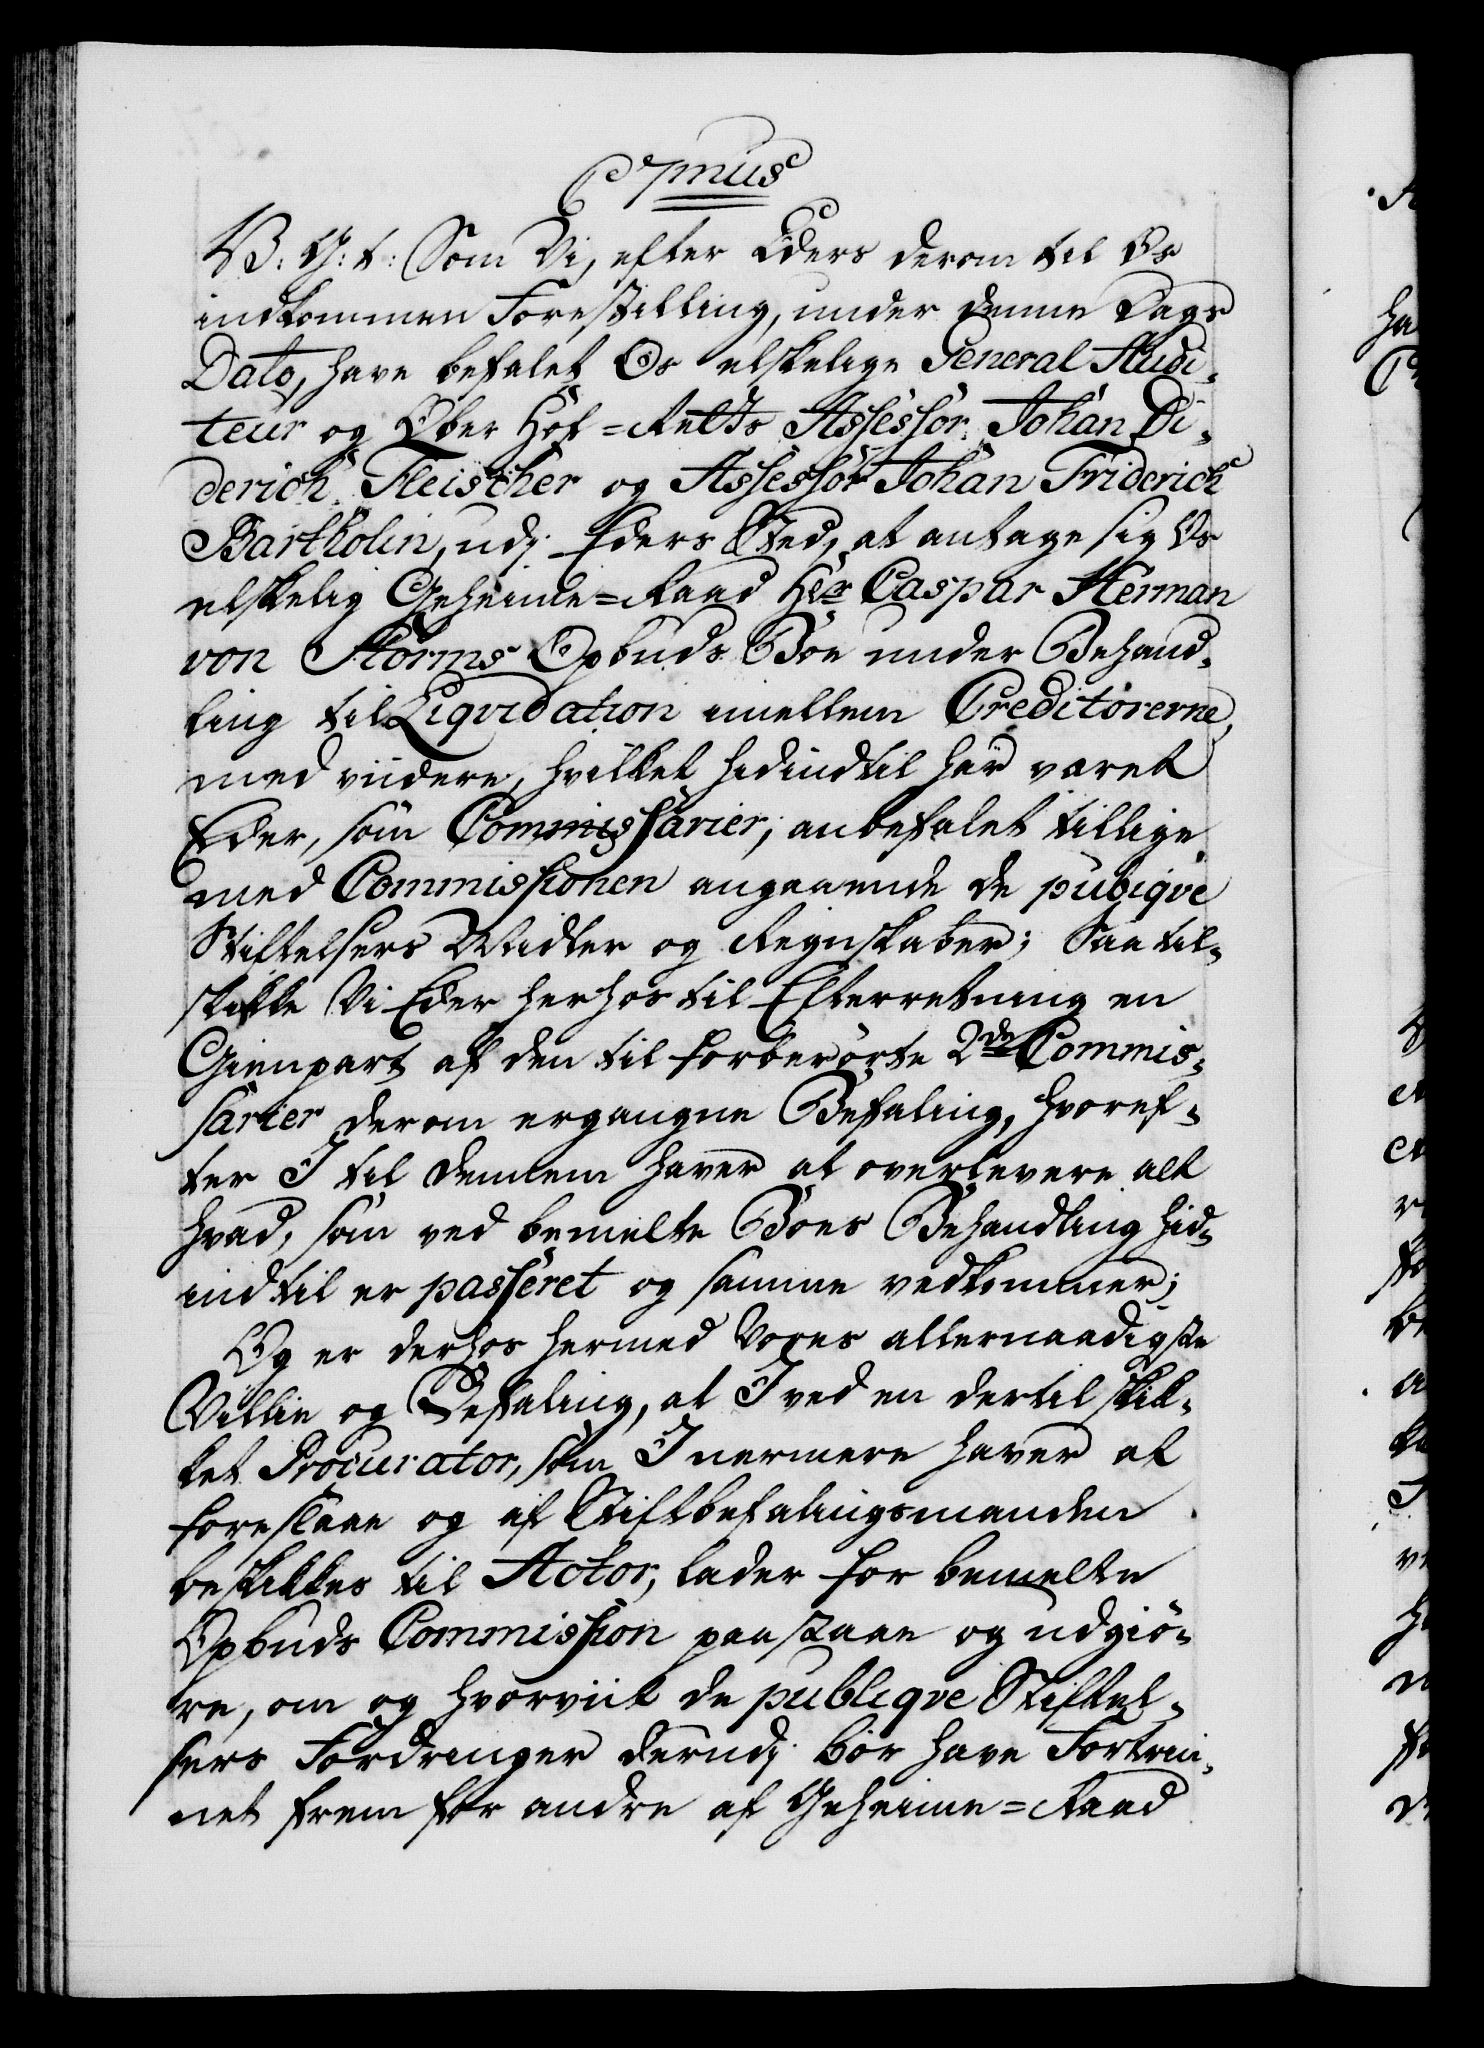 C 7mus
V: G: t: Som Vi, efter Eders derom til Os
indkommen Forestilling, under denne Dags
Dato, have befalet Os elskelige General Audi-
teur og Ober Hof=Retts Assessor Johan Di-
derich Fleischer og Assessor Johan Friderich
Bartholin, udj Eders Sted, at antage sig Os
elskelig Geheime=Raad Hr Caspar Herman
von Storms Opbuds Boe under Behand-
ling til Liqvidation imellem Creditorerne,
med viidere, hvilket hidindtil har været
Eder, som Commissarier, anbefalet tillige
med Commissionen angaaende de pubiqve
Stiftelsers Midler og Regnskaber; Saa til-
skikke Vi Eder herhos til Efterretning en
Gienpart af den til forberørte 2de Commis-
sarier derom ergangne Befaling, hvoref-
ter I til dennem haver at overlevere alt
hvad, som ved bemelte Boes Behandling hid-
indtil er passeret og samme vedkommer;
Og er derhos hermed Vores allernaadigste
Villie og Befaling, at I ved en dertil skik-
ket Procurator, som I nermere haver at
foreslaae og af Stiftbefalingsmanden
beskikkes til Actor, lader for bemelte
Opbuds Commission paastaae og udgiø-
re, om og hvorviit de publiqve Stiftel-
sers Fordringer derudj bør have Fortrin-
net frem for andre af Geheime=Raad